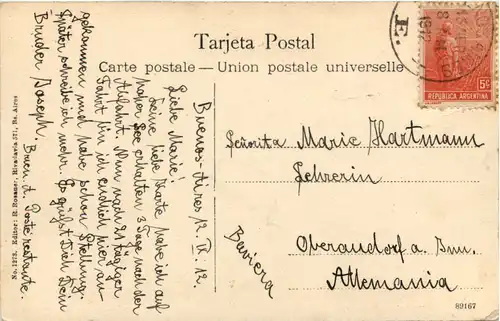 Tarjeta Postal
Carte postale — Union postale universelle
E.
1912
REPUBLICA ARGENTINA
5c
Buenos-Aires 12. IV. 12
Liebe Marie!
Deine liebe Karte habe ich auf
hoher See erhalten 3 Tage nach der
Abfahrt. Nun, nach 21 tägiger
Fahrt bin ich endlich hier an-
gekommen und habe schon Stellung.
Später schreibe ich mehr. Es grüßt Dich Dein
Bruder Joseph.
Buen. A. Poste restante.
Señorita Marie Hartmann
Lehrerin
Oberaudorf a. Inn.
Baviera
Allemania
No. 1075. Editor: R. Rosauer, Rivadavia 571, Bs. Aires
89167